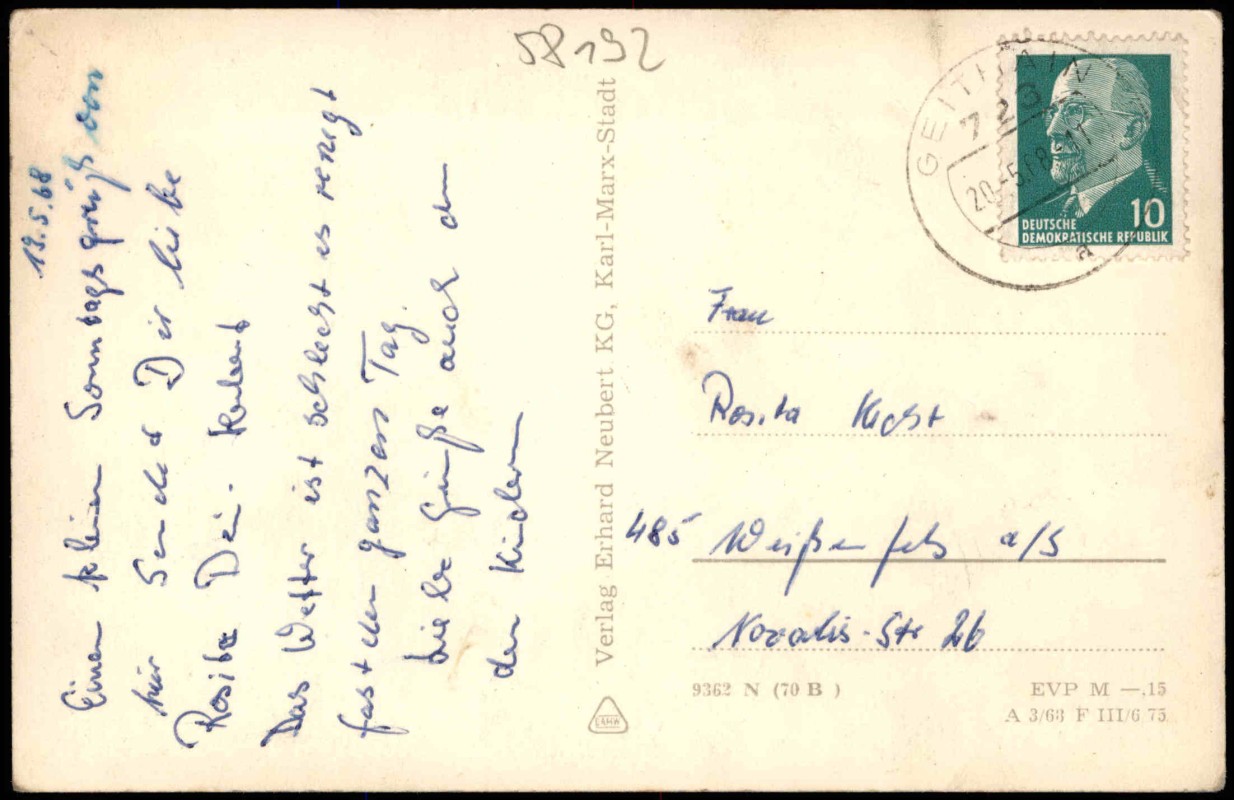 58192
19.5.68
Einen kleinen Sonntagsgruß von
hier Sendet Dir liebe
Rosita Dein
Das Wetter ist schlecht es regnet
fast den ganzen Tag.
Liebe Grüße auch an
den Kindern
Verlag Erhard Neubert KG, Karl-Marx-Stadt
GEITHAIN
20.-5.68-11
a
10
DEUTSCHE
DEMOKRATISCHE REPUBLIK
Frau
Rosita
485 Weißenfels a/S
Novalis-Str 26
9362 N (70 B )
EVP M —,15
A 3/63 F III/6 75